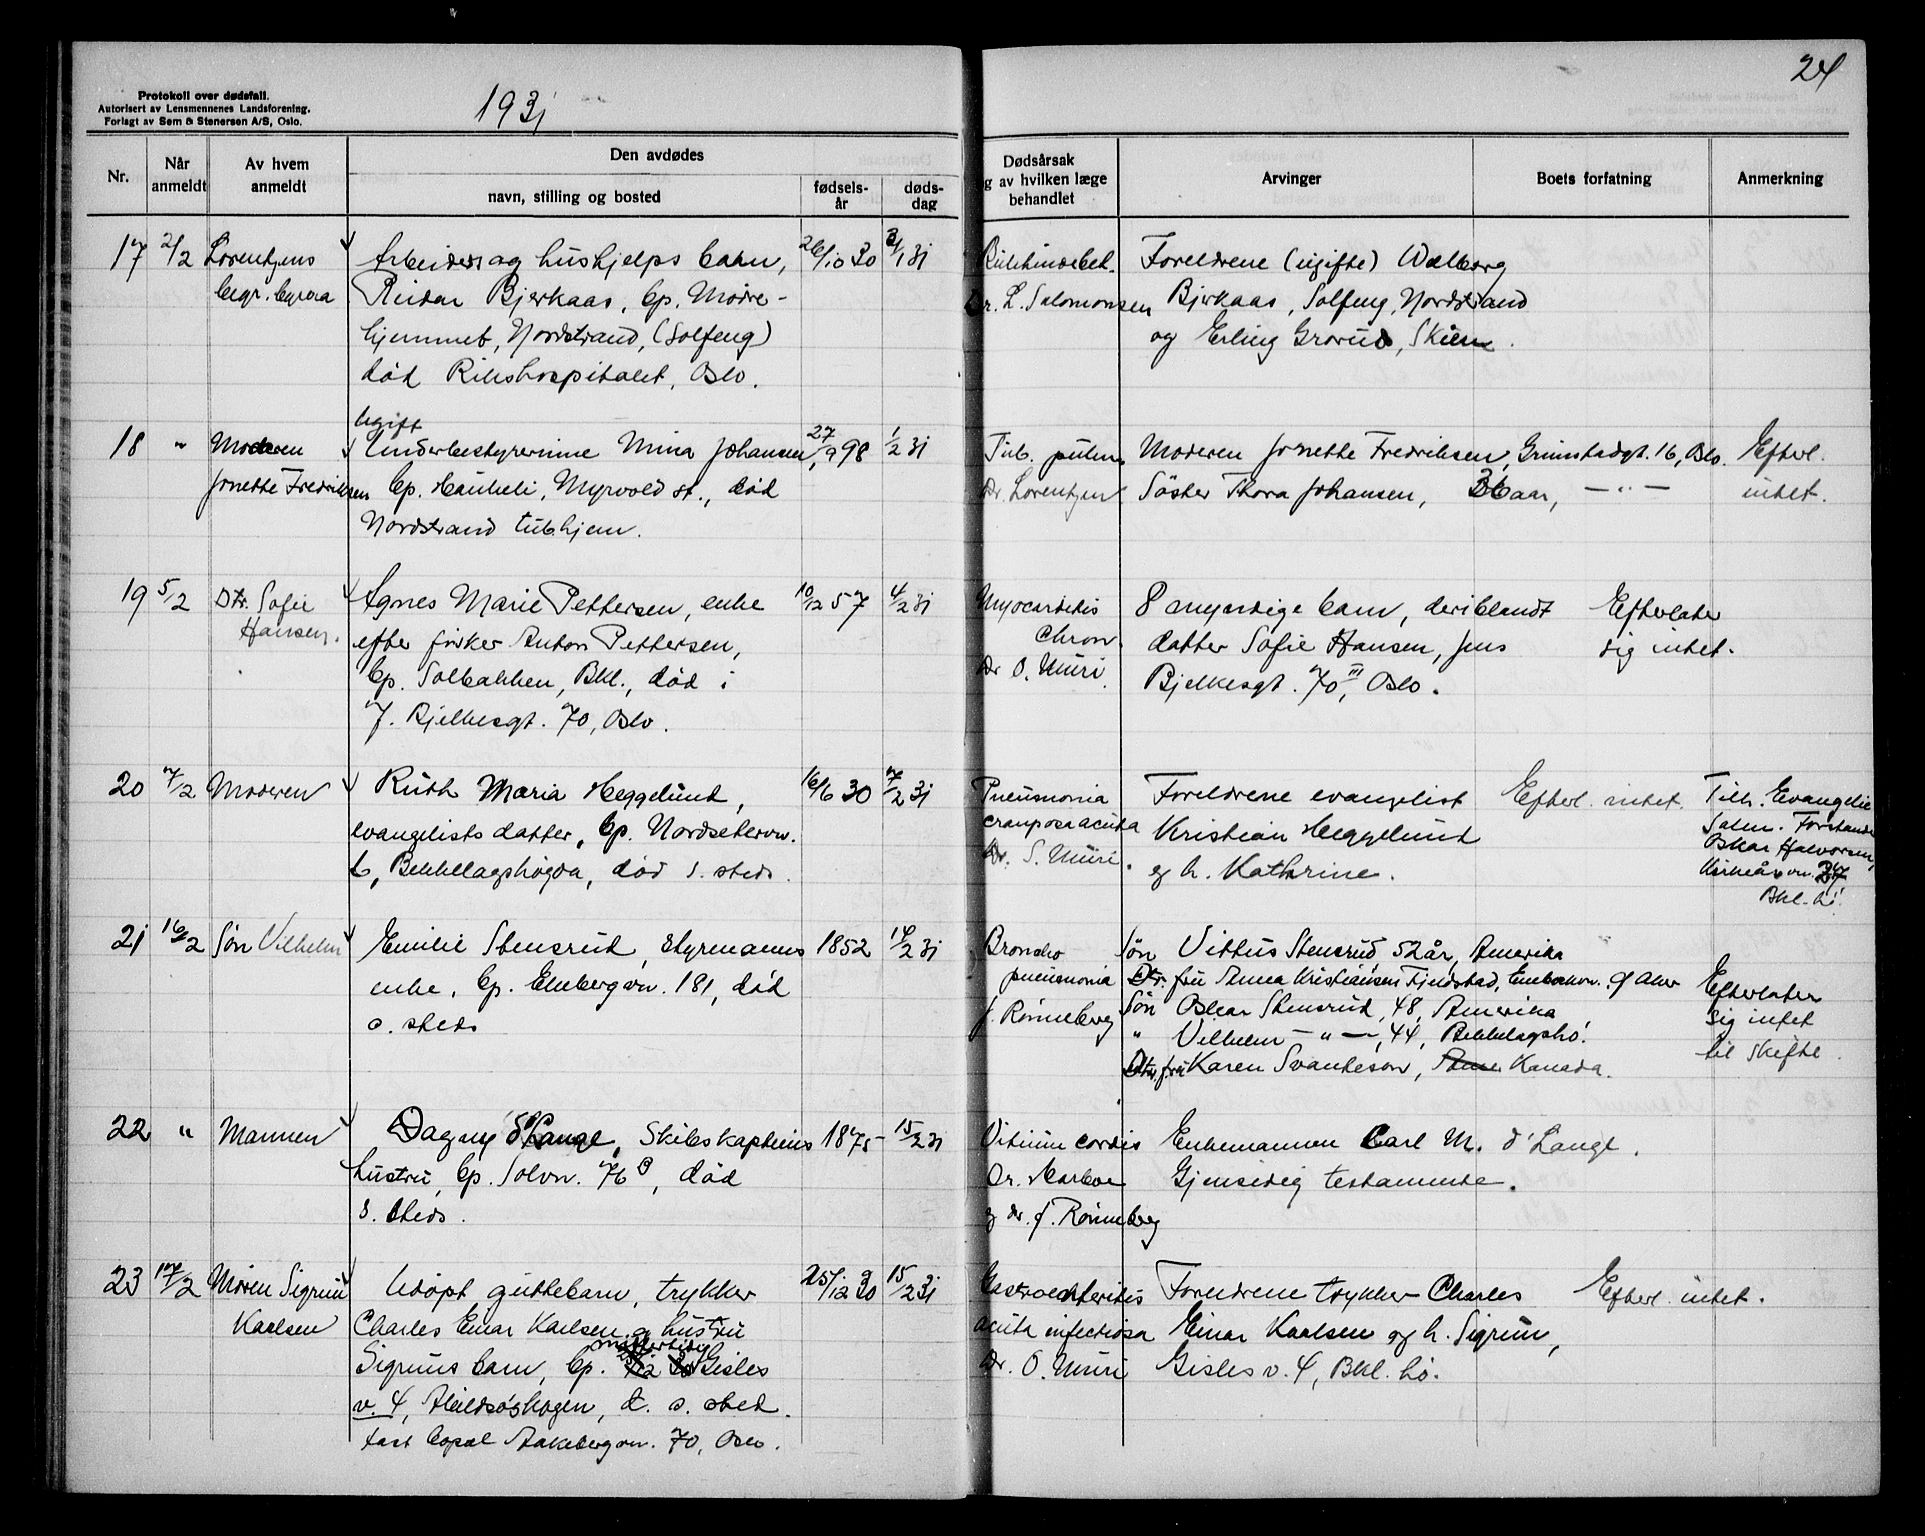 24
Protokoll over dødsfall.
Autorisert av Lensmennenes Landsforening.
Forlagt av Sem & Stenersen A/S, Oslo.
1931
Nr.
Når anmeldt
Av hvem anmeldt
Den avdødes
navn, stilling og bosted
fødsels-år
døds-dag
Dødsårsak
g av hvilken læge
behandlet
Arvinger
Boets forfatning
Anmerkning
17 2/2 Lorentzens
begr. byraa
Arbeiders og hushjelps barn, 26/10 30 3/1 31
Reidar Bjerkaas, bp. Mødre-
hjemmet, Nordstrand, (Solfeng)
død Rikshospitalet, Oslo.
Dr. L. Salomonsen
Foreldrene (ugifte) Walborg
Bjerkaas, Solfeng, Nordstrand
og Erling Grorud, Skien.
18 " Moderen
Jonette Fredriksen
Ugift
Underbestyrerinne Mina Johansen, 27/9 98 1/2 31
bp. Haukeli, Myrvold st., død
Nordstrand tub.hjem.
Tub. pulm.
Dr. Lorentzen
Moderen Jonette Fredriksen, Grimstadgt. 16, Oslo.
Søster Thora Johansen, 36 aar, — " —
Efterl.
intet.
19 5/2 Dtr. Sofie
Hansen.
Agnes Marie Pettersen, enke 10/12 57 4/2 31
efter Anton Pettersen,
bp. Solbakken, Bkl., død i
J. Bjelkesgt. 70, Oslo.
Myocarditis
chron.
Dr O. Muri
8 myndige barn, deriblandt
datter Sofie Hansen, Jens
Bjelkesgt. 70 III, Oslo.
Efterlater
sig intet.
20 7/2 Moderen
Ruth Maria Heggelund, 16/6 30 7/2 31
evangelists datter, bp. Nordsetervn.
6, Bekkelagshøgda, død s. steds.
Pneumonia
crouposa acuta
Dr. S. Muri.
Foreldrene evangelist
Kristian Heggelund
og h. Kathrine.
Efterl. intet.
Tilh. Evangelie
Salen. Forstander
Oskar Halvorsen,
Bkl. hø.
21 16/2 Søn Vilhelm
Emilie Stensrud, styrmanns 1852 14/2 31
enke, bp. Ekebergvn. 181, død
s. steds
Broncho
pneumonia
J. Rønneberg
Søn Vittus Stensrud 52 år, Amerika
Dtr. fru Anna Kristiansen Fjeldstad, Ø. Aker
Søn Oskar Stensrud, 48, Amerika
" Vilhelm — " —, 44, Bekkelagshø.
Dtr. fru Karen Svanteson, Kanada.
Efterlater
sig intet
til skifte.
22 " Mannen
Dagny d'Lange, Skibskapteins 1875 15/2 31
hustru, bp. Solvn. 76 B, død
s. steds.
Vitium cordis
Dr. Harboe
og dr. J. Rønneberg
Enkemannen Carl M. d'Lange.
Gjensidig testamente.
23 17/2 Moren Sigrun
Karlsen
Udøpt guttebarn, trykker 25/12 30 15/2 31
Charles Einar Karlsen og hustru
Sigruns barn, bp. midlertidig Gisles
v. 4, d. s. sted.
fast bopæl Aakebergvn. 70, Oslo.
Gastroenteritis
acuta infectiosa
Dr. O. Muri
Foreldrene trykker Charles
Einar Karlsen og h. Sigrun,
Gisles v. 4, Bkl. hø.
Efterl. intet.